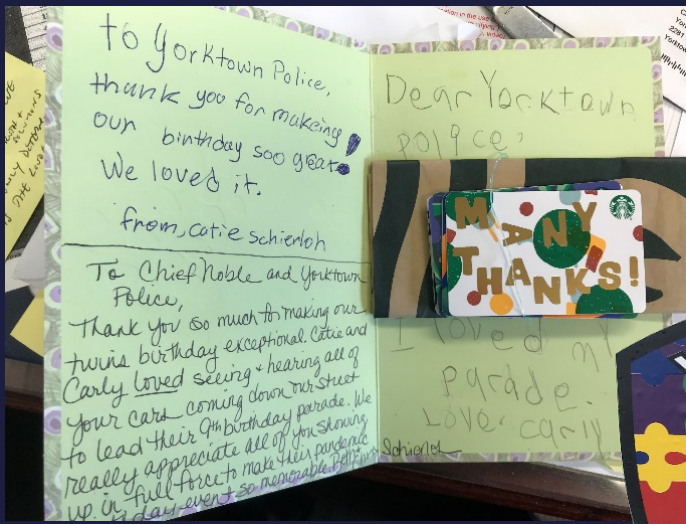 to Yorktown Police,
thank you for makeing
our birthday soo great!
We loved it.
from, catie Schierloh
To Chief Noble and Yorktown
Police,
Thank you so much for making our
twins birthday exceptional. Catie and
Carly loved seeing + hearing all of
your cars coming down our street
to lead their 9th birthday parade. We
really appreciate all of you showing
up in full force to make their pandemic
day event so memorable.
Schierloh
Dear Yorktown
police,
MANY
THANKS!
I loved my
parade.
Love, carly